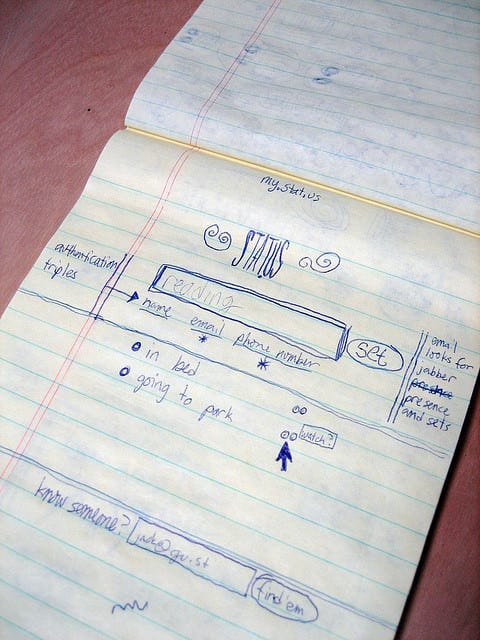 my.stat.us
STATUS
authentication
triples
reading
set
name email phone number
* *
in bed
going to park
watch?
email
looks for
jabber
presence
presence
and sets
know someone? jack@gu.st find 'em